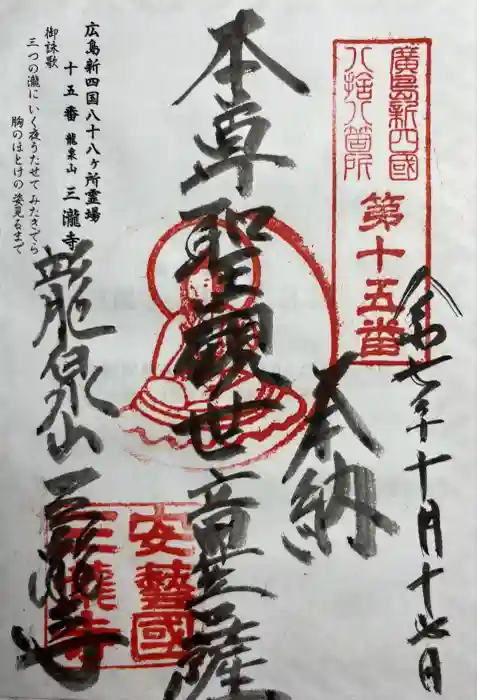 廣島新四國
八拾八箇所
第十五番
令和七年十月十七日
奉納
本尊聖觀世音菩薩
広島新四国八十八ヶ所霊場
十五番 龍泉山 三瀧寺
御詠歌
三つの瀧に いく夜うたせて みたさてら
胸のほとけの 姿見るまで
龍泉山 三瀧寺
安藝國
三瀧寺